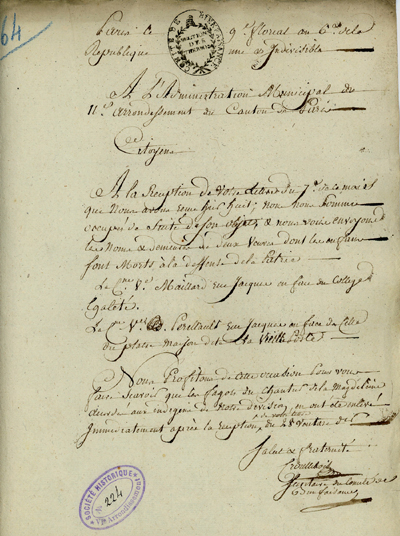 64
Paris le 9 floreal an 6e de la
Republique une et Indivisible
COMITÉ DE BIENFAISANCE
DIVISION DES THERMES
A L'Administration Municipal du
11e arrondissement du Canton de Paris
Citoyens
A la Reception de votre Lettre du 7 de ce mois et
que Nous avons recue hier huit; nous nous sommes
occupés de suite de son objet, & nous vous envoyons
les Noms & demeures de deux Veuves dont les enfans
sont Morts à la deffense de la Patrie
La Cne Ve Maillard rue Jacques en face du College
Egalité.
La Cne Ve Perellault rue Jacques en face de celle
du platre maison dite de la Vieille Poste
Nous Profitons de cette occasion pour vous
faire Scavoir que les fagots du Chantier de la Magdeleine
aux indigens de notre division, en ont été enlevé
Immediatement apres la reception de
Salut & Fraternité
Secretaire du Comité de
Bienfaisance
SOCIÉTÉ HISTORIQUE
VIe Arrondissement
No 224